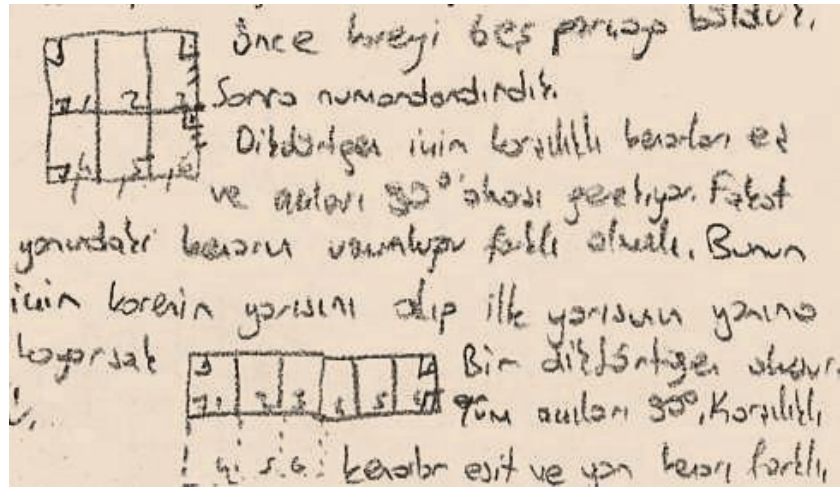 Önce kareyi beş parçaya böldük.
1 2 3
Sonra numaralandırdık.
Dikdörtgen için karşılıklı kenarları eş
4 5 6
ve açıları 90° olması gerekiyor. Fakat
yanındaki kenarın uzunluğu farklı olmalı. Bunun
için karenin yarısını alıp ilk yarısının yanına
koyarsak
Bir dikdörtgen oluşur.
1 2 3 4 5
Tüm açıları 90°, Karşılıklı
4 5 6
kenarlar eşit ve yan kenarı farklı,